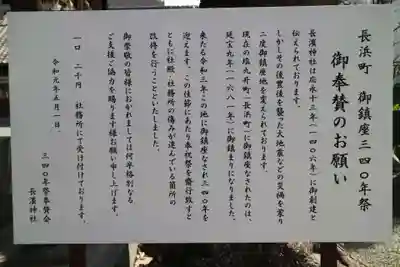 長浜町 御鎮座三四〇年祭
御奉賛のお願い
長濱神社は応永十三年(一四〇六年)に御創建と
伝えられております。
しかしその後豊後を襲った大地震などの災禍を蒙り
二度御鎮座地を変えられております。
現在の塩九升町(長浜町)に御鎮座なされたのは、
延宝九年(一六八一年)に御鎮まりになりました。
来たる令和三年この地に御鎮座なされ三四〇年を
迎えます。この佳節にあたり奉祝祭を斎行致すと
ともに社殿・社務所の傷みが進んでいる箇所の
改修を行うことといたしました。
御崇敬の皆様におかれましては何卒格別なる
ご支援ご協力を賜ります様お願い申し上げます。
一口 二千円 社務所にて受け付けております。
令和元年五月一日、
三四〇年祭奉賛会
長濱神社